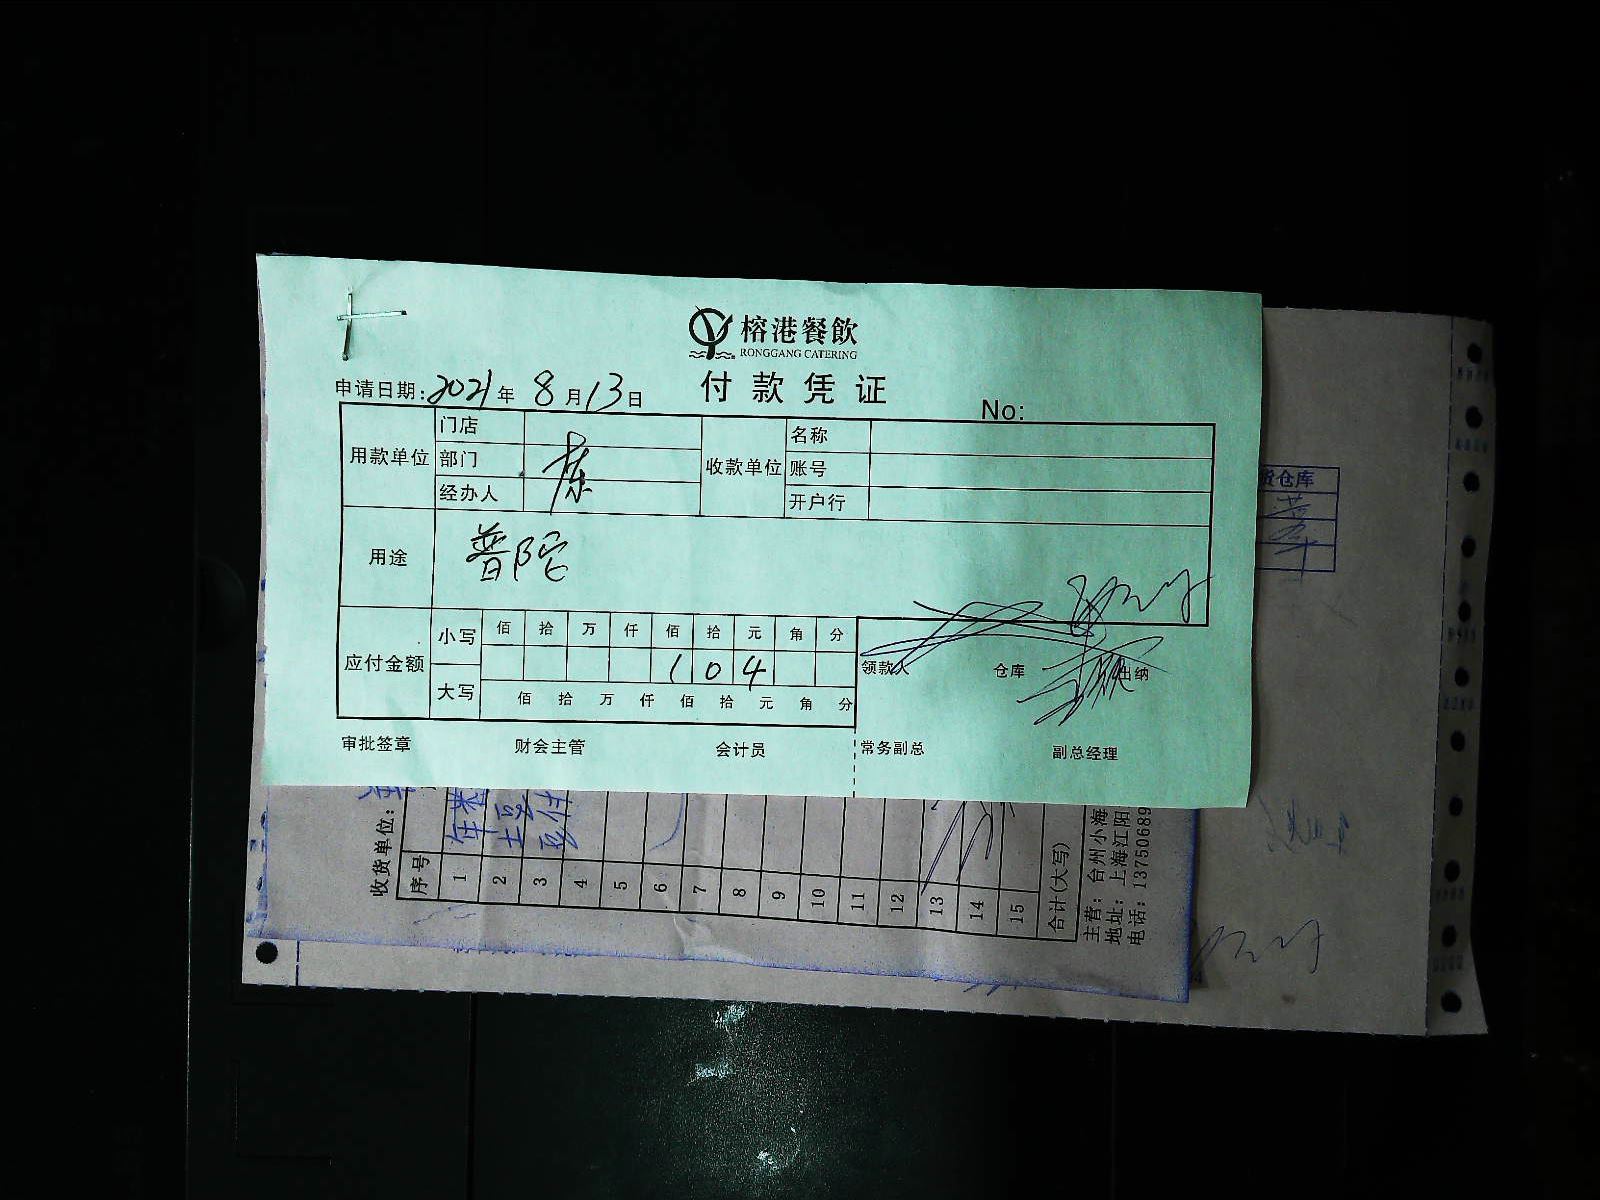 榕港餐飲
RONGGANG CATERING
付款凭证
申请日期:2021年8月13日
No:
用款单位
门店
部门
经办人
栋
收款单位
名称
账号
开户行
用途
普陀
应付金额
小写
佰 拾 万 仟 佰 拾 元 角 分
1 0 4
大写
佰 拾 万 仟 佰 拾 元 角 分
领款人 仓库 出纳
审批签章 财会主管 会计员 常务副总 副总经理
仓库
收货单位:
序号
1 2 3 4 5 6 7 8 9 10 11 12 13 14 15
合计(大写)
主营: 台州小海
地址: 上海江阳
电话: 13750689